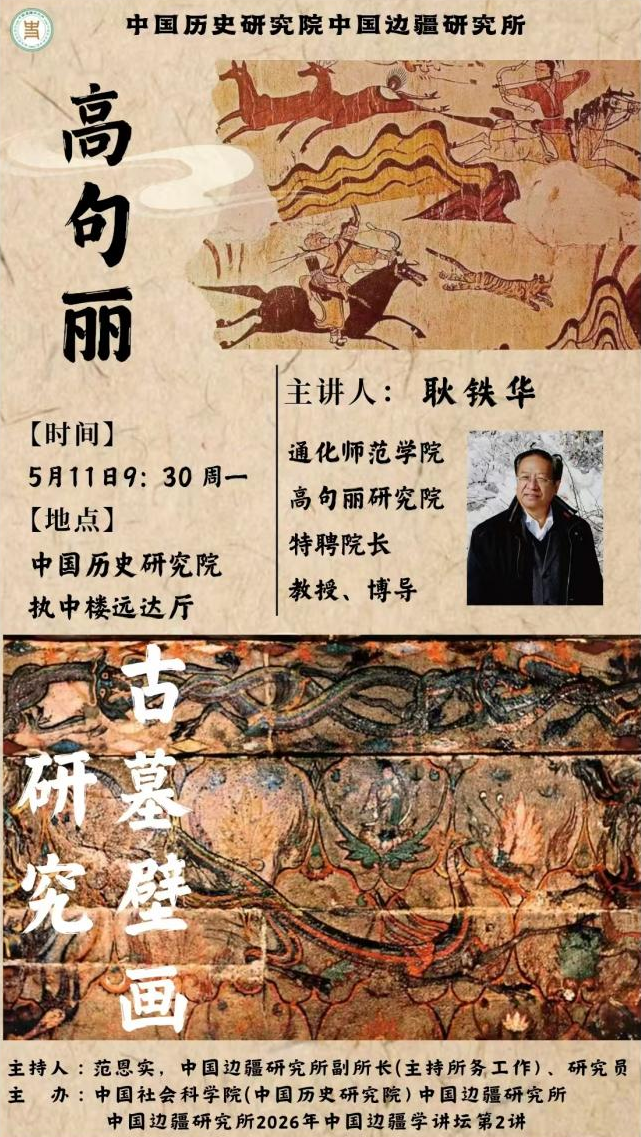 中国历史研究院中国边疆研究所
高句丽
主讲人：耿铁华
通化师范学院
高句丽研究院
特聘院长
教授、博导
【时间】
5月11日9：30 周一
【地点】
中国历史研究院
执中楼远达厅
古墓壁画
研究
主持人：范恩实，中国边疆研究所副所长(主持所务工作)、研究员
主 办：中国社会科学院(中国历史研究院)中国边疆研究所
中国边疆研究所2026年中国边疆学讲坛第2讲